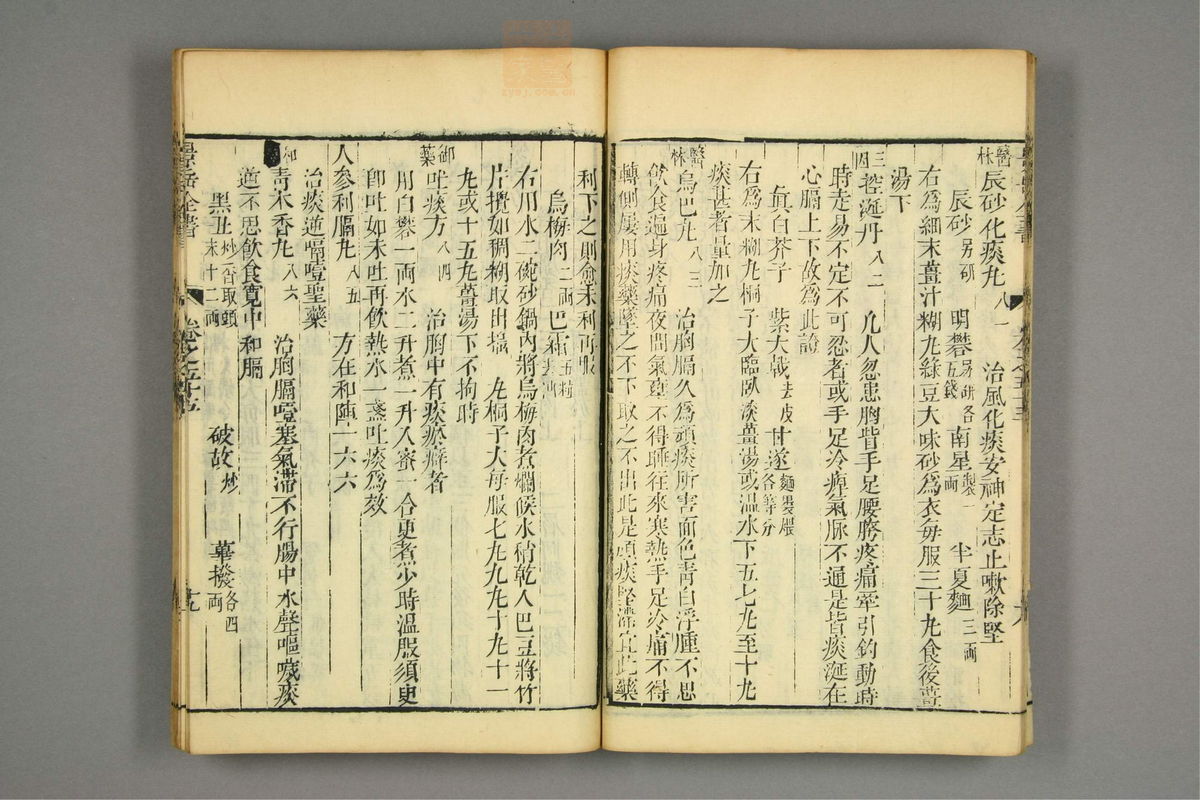 醫林辰砂化痰丸八一　治風化痰安神定志止嗽除堅
辰砂另研　明礬另研各五錢　南星製一兩　半夏麯三兩
右為細末薑汁糊丸綠豆大硃砂為衣每服三十丸食後薑
湯下
三因控涎丹八二　凡人忽患胸背手足腰胯疼痛牽引釣動時
時走易不定不可忍者或手足冷痺氣脉不通是皆痰涎在
心膈上下故為此證
真白芥子　紫大戟去皮　甘遂麵裹煨各等分
右為末糊丸桐子大臨臥淡薑湯或溫水下五七丸至十丸
痰甚者量加之
醫林烏巴丸八三　治胸膈久為頑痰所害面色青白浮腫不思
飲食遍身疼痛夜間氣壅不得睡往來寒熱手足冷痛不得
轉側屢用痰藥墜之不下取之不出此是頑痰堅滯宜此藥
利下之則愈未利再服
烏梅肉二兩　巴豆五粒去油
右用水二碗砂鍋內將烏梅肉煮爛候水稍乾入巴豆將竹
片攪如稠糊取出搗　丸桐子大每服七丸九丸十九十一
丸或十五丸薑湯下不拘時
御藥吐痰方八四　治胸中有痰瘀癖者
用白礬一兩水二升煮一升入蜜一合更煮少時溫服須臾
即吐如未吐再飲熱水一盞吐痰為效
人參利膈丸八五　方在和陣一六六
治痰逆嗝噎聖藥
和青木香丸八六　治胸膈噎塞氣滯不行腸中水聲嘔噦痰
逆不思飲食寬中和膈
黑丑炒香取頭末十二兩　破故炒　蓽撥各四兩
景岳全書
卷之五十五
十九